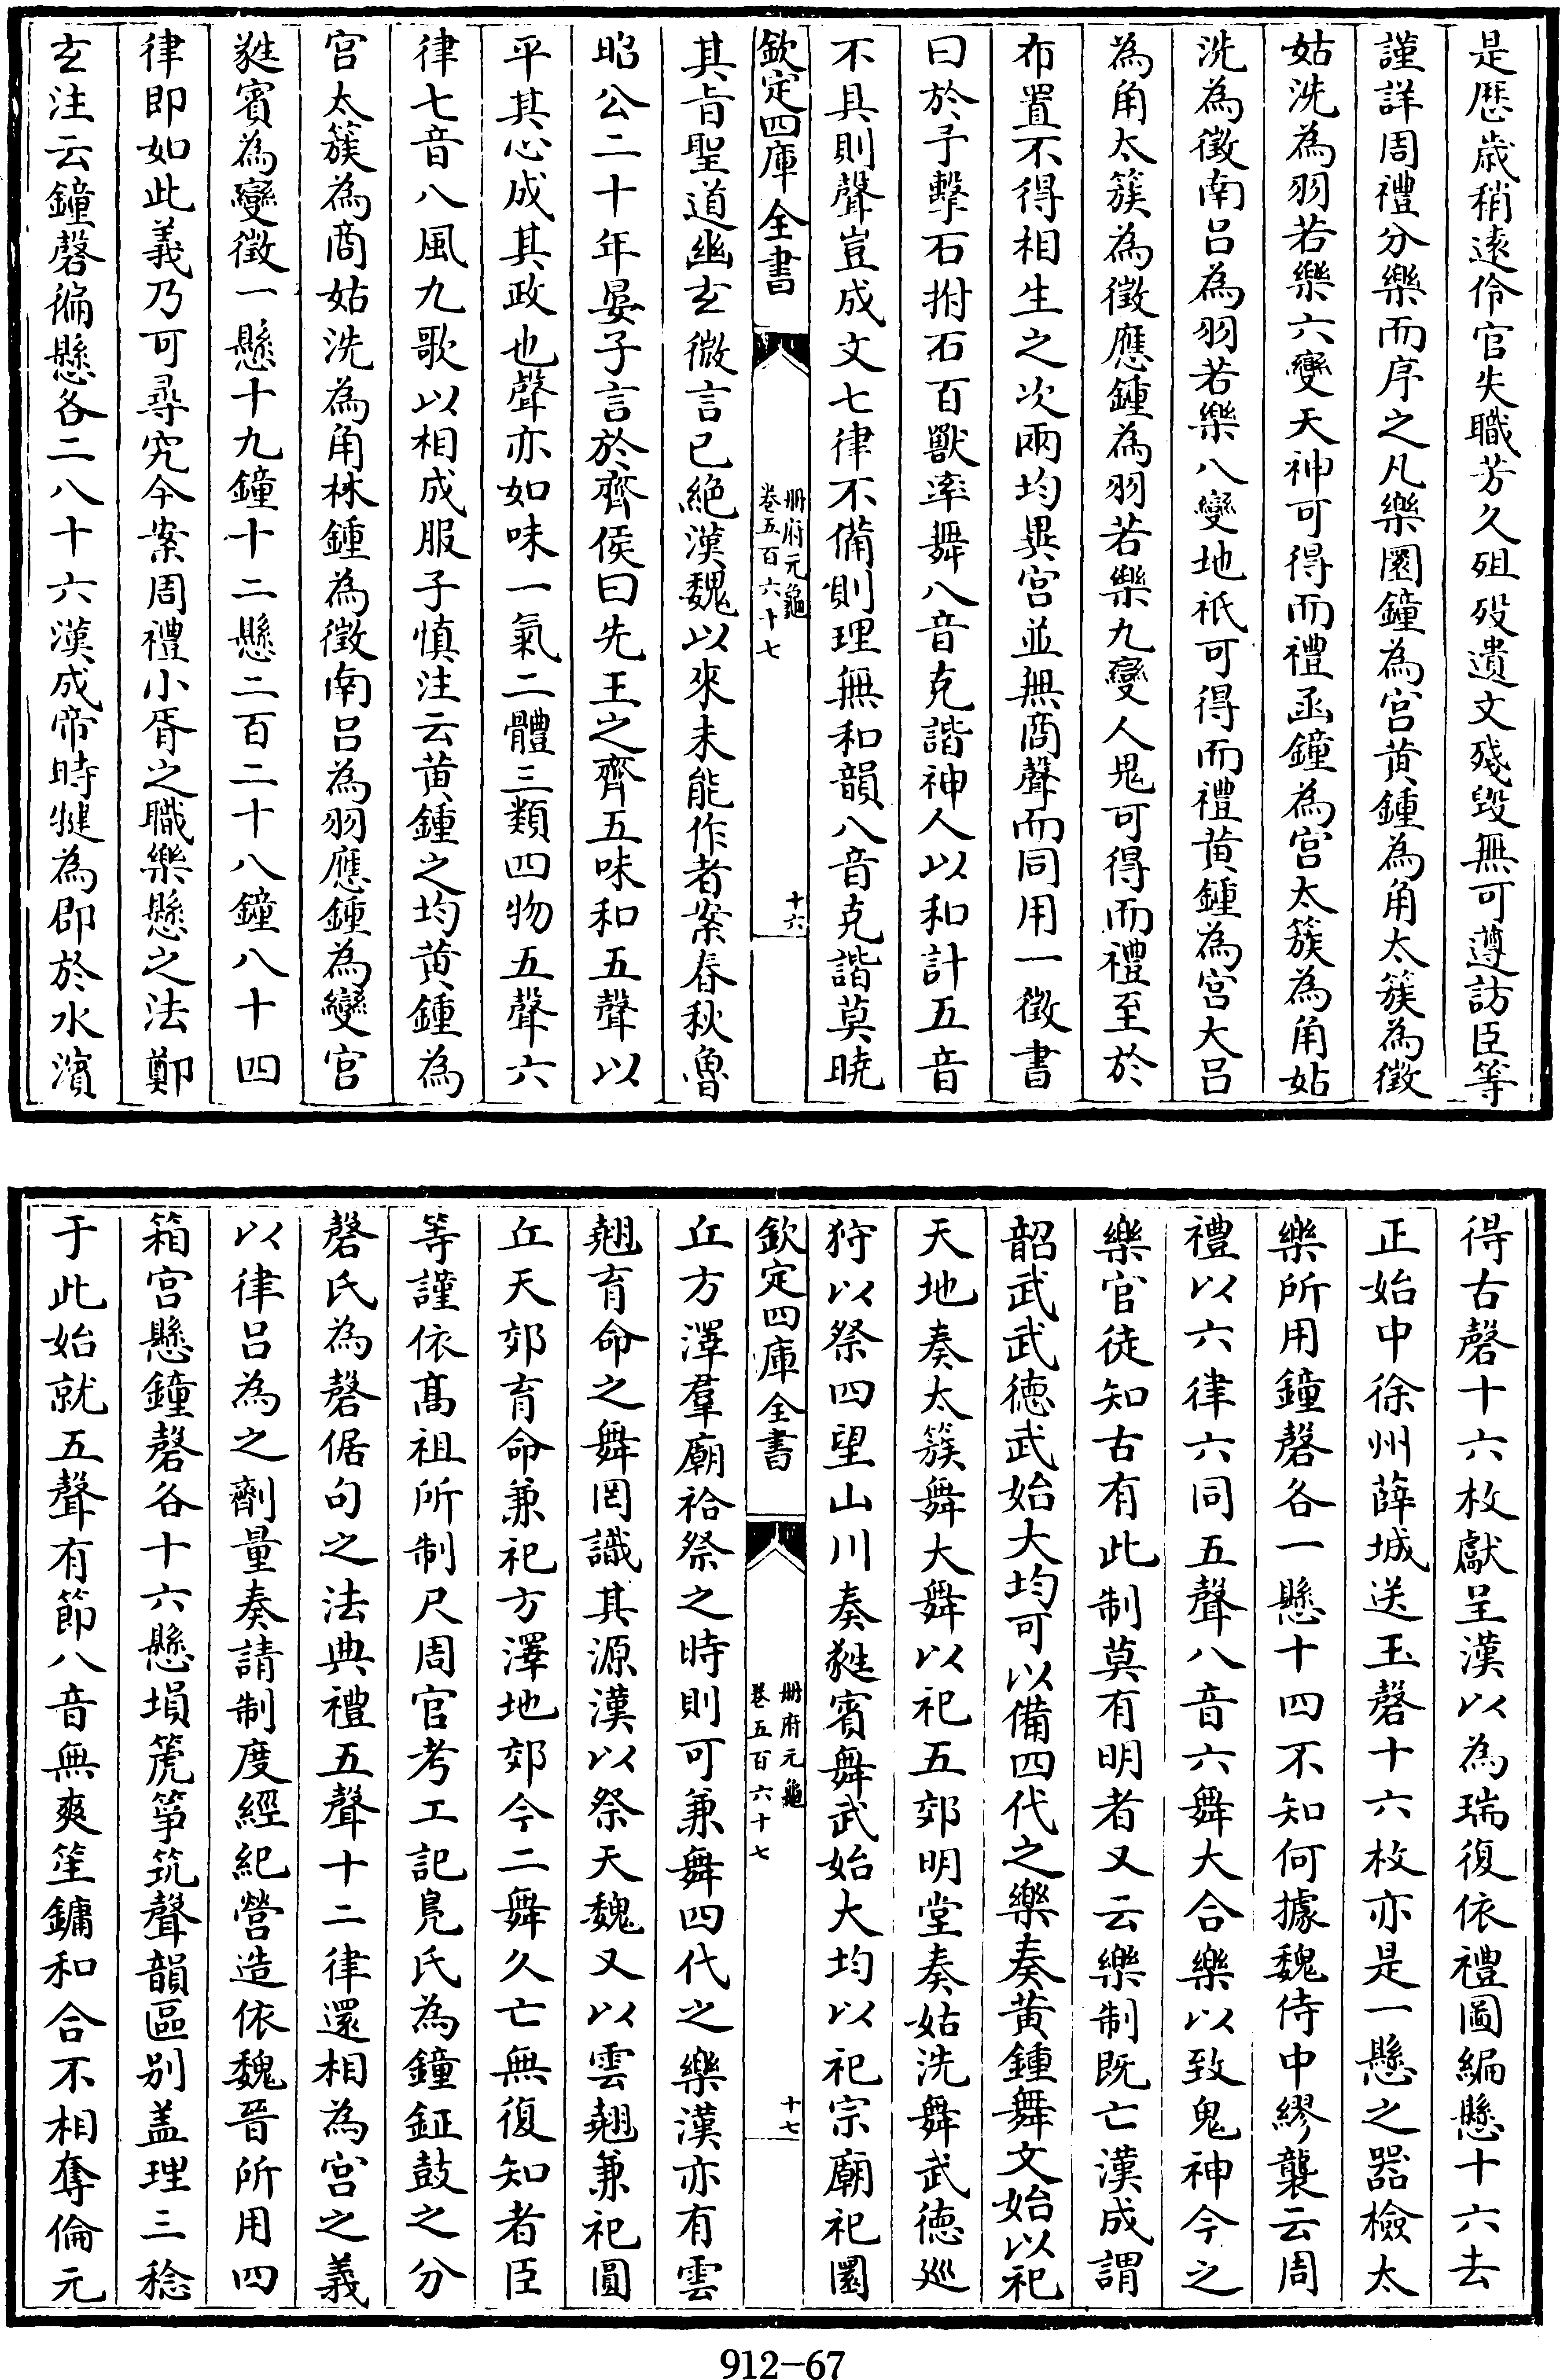 是歴歳稍逺伶官失職芳久殂歿遺文殘毁無可遵訪臣等
謹詳周禮分樂而序之凡樂圜鐘為宫黄鍾為角太簇為徵
姑洗為羽若樂六變天神可得而禮函鐘為宫太簇為角姑
洗為徵南吕為羽若樂八變地祇可得而禮黄鍾為宫大吕
為角太簇為徵應鍾為羽若樂九變人鬼可得而禮至於
布置不得相生之次兩均異宫並無商聲而同用一徵書
曰於予擊石拊石百獸率舞八音克諧神人以和計五音
不具則聲豈成文七律不備則理無和韻八音克諧莫曉
欽定四庫全書
冊府元龜
卷五百六十七
十六
其旨聖道幽玄微言已絶漢魏以來未能作者案春秋魯
昭公二十年晏子言於齊侯曰先王之齊五味和五聲以
平其心成其政也聲亦如味一氣二體三類四物五聲六
律七音八風九歌以相成服子慎注云黄鍾之均黄鍾為
宫太簇為商姑洗為角林鍾為徵南吕為羽應鍾為變宫
蕤賓為變徵一懸十九鐘十二懸二百二十八鐘八十四
律即如此義乃可尋究今案周禮小胥之職樂懸之法鄭
玄注云鐘磬徧懸各二八十六漢成帝時犍為郡於水濱
得古磬十六枚獻呈漢以為瑞復依禮圖編懸十六去
正始中徐州薛城送玉磬十六枚亦是一懸之器檢太
樂所用鐘磬各一懸十四不知何據魏侍中繆襲云周
禮以六律六同五聲八音六舞大合樂以致鬼神今之
樂官徒知古有此制莫有明者又云樂制既亡漢成謂
韶武武德武始大均可以備四代之樂奏黄鍾舞文始以祀
天地奏太簇舞大舞以祀五郊明堂奏姑洗舞武德廵
狩以祭四望山川奏蕤賓舞武始大均以祀宗廟祀圜
欽定四庫全書
冊府元龜
卷五百六十七
十七
丘方澤羣廟祫祭之時則可兼舞四代之樂漢亦有雲
翹育命之舞罔識其源漢以祭天魏又以雲翹兼祀圓
丘天郊育命兼祀方澤地郊今二舞久亡無復知者臣
等謹依髙祖所制尺周官考工記鳬氏為鐘鉦鼓之分
磬氏為磬倨句之法典禮五聲十二律還相為宫之義
以律吕為之劑量奏請制度經紀營造依魏晉所用四
箱宫懸鐘磬各十六懸塤箎筝筑聲韻區别盖理三稔
于此始就五聲有節八音無爽笙鏞和合不相奪倫元
912-67